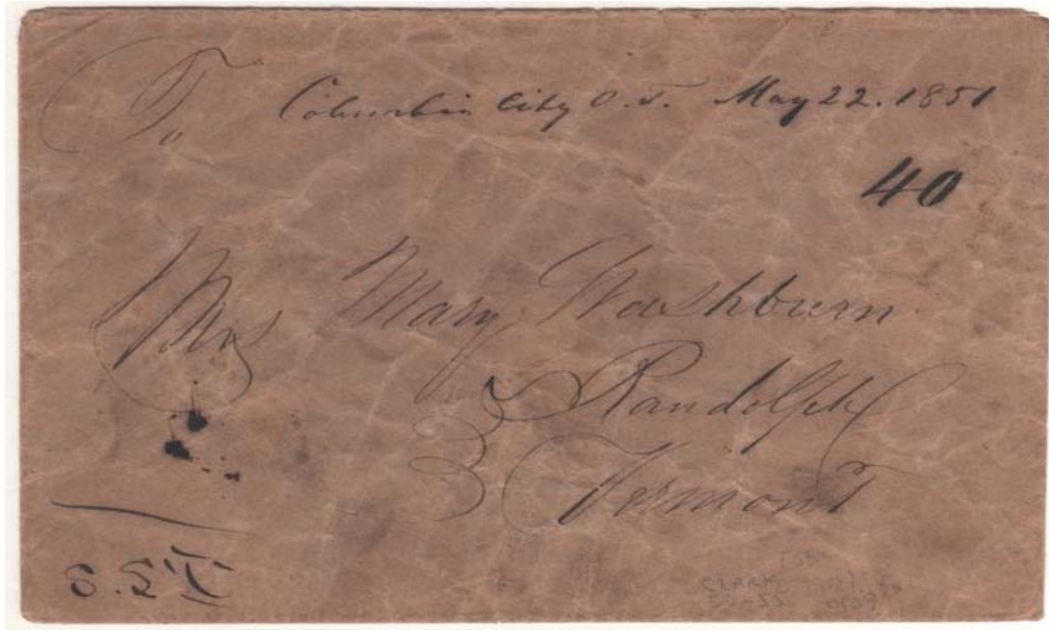 To Columbia City O. T. May 22. 1851
40
Mrs Mary Washburn
Randolph
Vermont
CLARK